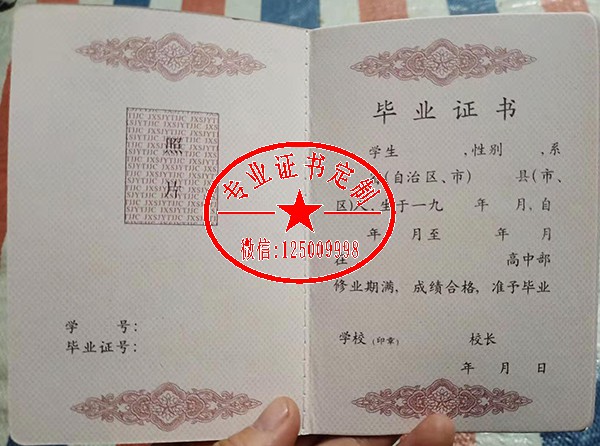 照
片
学 号:
毕业证号:
毕业证书
学生 ,性别 ,系
(自治区、市) 县(市、
区)人,生于一九 年 月,自
年 月至 年 月
在 高中部
修业期满,成绩合格,准予毕业
学校(印章) 校长
年 月 日
专业证书定制
微信:125009998